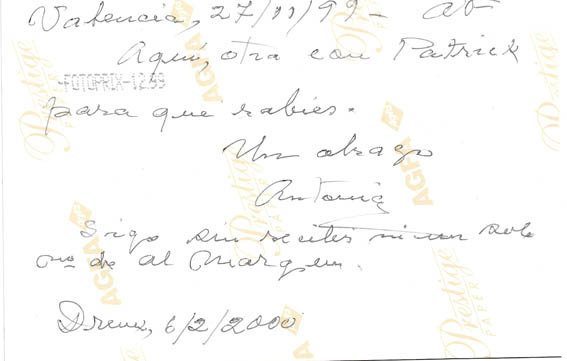 Valencia, 27/11/99 -
Aquí, otra con Patrick
-FOTOPRIX-12.99
para que rabies.
Un abrazo
Antonia
Sigo sin recibir ni un solo
nº de Al Margen.
Dreux, 6/2/2000
Prestige
PAPER
AGFA